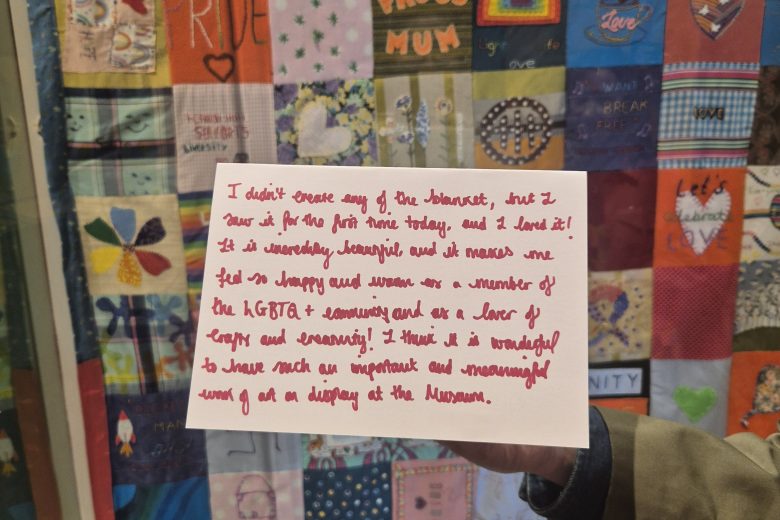 PRIDE
PROUD
MUM
Light to
ove
Love
I WANT
BREAK
FREE
LOVE
SUPPORTS
diversity
Let's
celebrate
LOVE
I didn't create any of the blanket, but I
saw it for the first time today, and I loved it!
It is incredibly beautiful, and it makes me
feel so happy and warm as a member of
the LGBTQ+ community and as a lover of
crafts and creativity! I think it is wonderful
to have such an important and meaningful
work of art on display at the Museum.
NITY
MAN